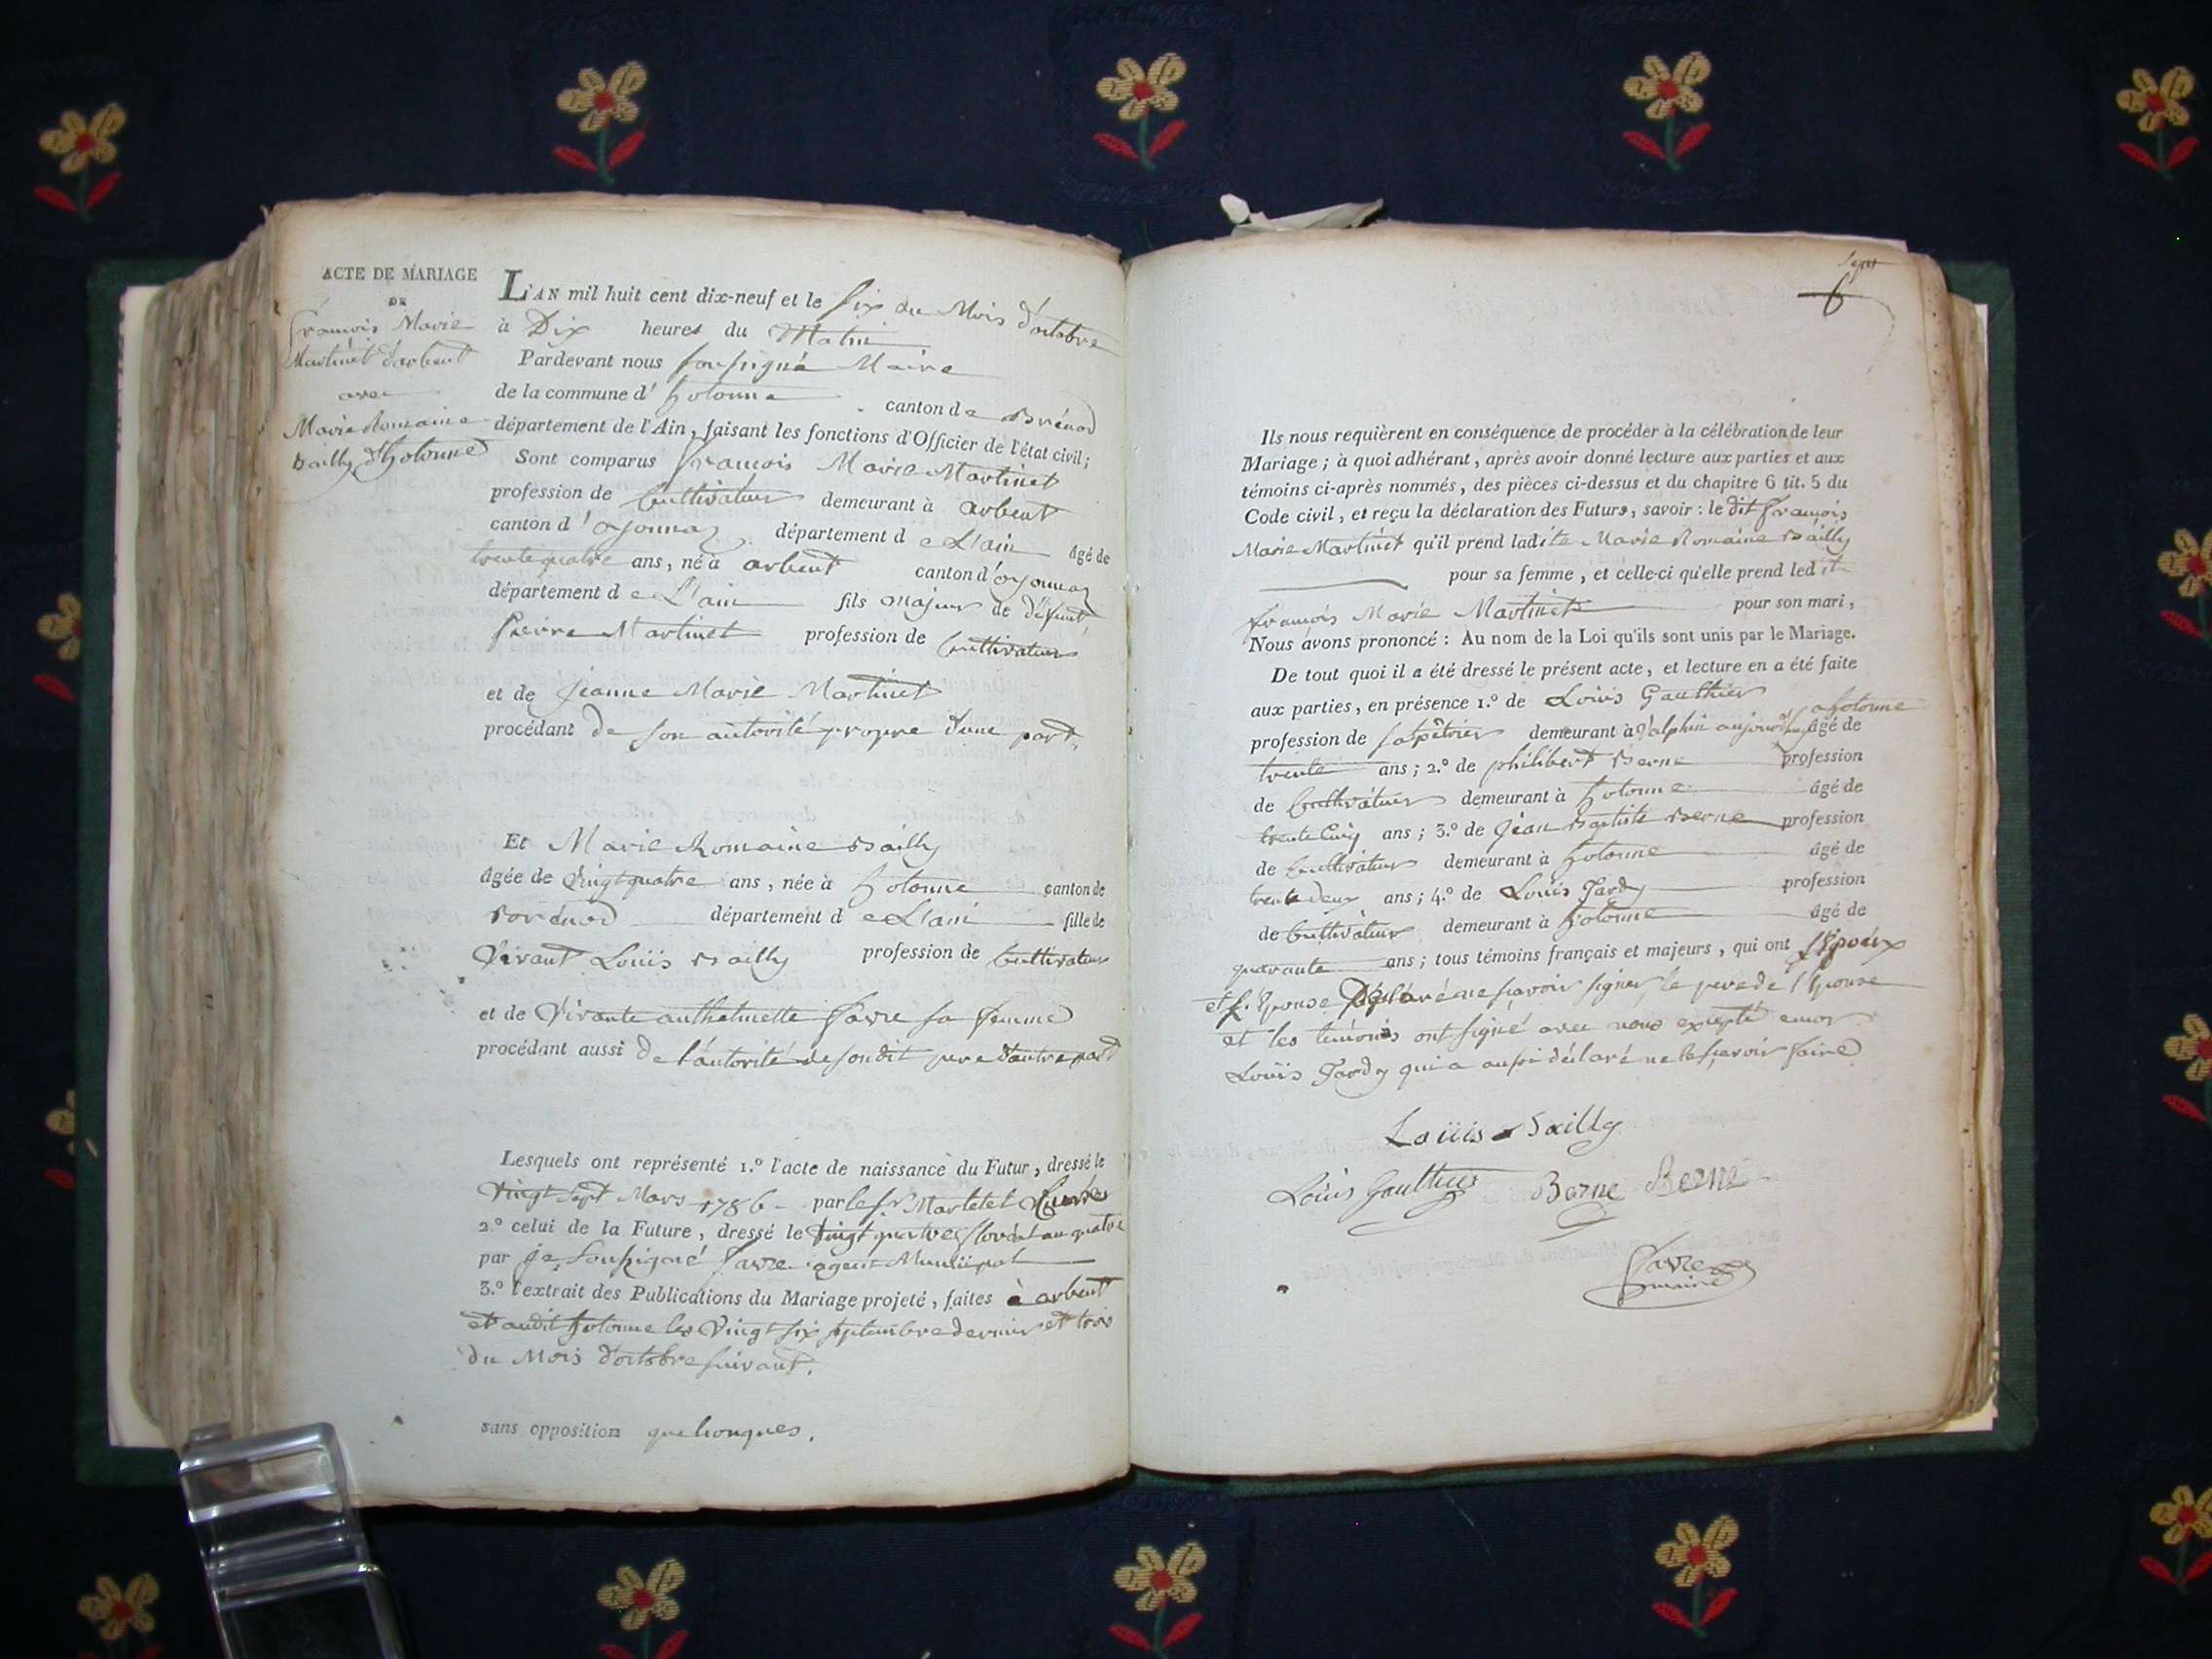 ACTE DE MARIAGE
DE
François Marie
Martinet d'arbent
avec
Marie Romaine
Bailly d'hotonne
L'AN mil huit cent dix-neuf et le six du Mois d'octobre
à Dix heures du Matin
Pardevant nous soussigné Maire
de la commune d' hotonne canton de Brénod
département de l'Ain, faisant les fonctions d'Officier de l'état civil;
Sont comparus François Marie Martinet
profession de Cultivateur demeurant à arbent
canton d'oyonnaz département de L'ain âgé de
trente quatre ans, né à arbent canton d'oyonnaz
département de L'ain fils majeur de défunt
Pierre Martinet profession de Cultivateur
et de Jeanne Marie Martinet
procédant de son autorité propre d'une part,
Et Marie Romaine Bailly
âgée de Vingt quatre ans, née à hotonne canton de
département de L'ain fille de
Vivant Louis Bailly profession de Cultivateur
et de Vivante anthelmette Favre sa femme
procédant aussi de l'autorité de son dit pere d'autre part
Lesquels ont représenté 1.º l'acte de naissance du Futur, dressé le
Vingt sept Mars 1786 par le Sr Martelet Curé
2.º celui de la Future, dressé le Vingt quatre floréal an quatre
par je soussigné Favre agent Municipal
3.º l'extrait des Publications du Mariage projeté, faites à arbent
et audit hotonne les Vingt six septembre dernier et trois
du Mois d'octobre suivant.
sans opposition quelconques.
6
Ils nous requièrent en conséquence de procéder à la célébration de leur
Mariage; à quoi adhérant, après avoir donné lecture aux parties et aux
témoins ci-après nommés, des pièces ci-dessus et du chapitre 6 tit. 5 du
Code civil, et reçu la déclaration des Futurs, savoir : le dit François
Marie Martinet qu'il prend ladite Marie Romaine Bailly
pour sa femme, et celle-ci qu'elle prend ledit
François Marie Martinet pour son mari,
Nous avons prononcé : Au nom de la Loi qu'ils sont unis par le Mariage.
De tout quoi il a été dressé le présent acte, et lecture en a été faite
aux parties, en présence 1.º de Louis Gauthier
profession de salpêtrier demeurant à aujourd'hui a hotonne âgé de
trente ans; 2.º de philibert Berne profession
de Cultivateur demeurant à hotonne âgé de
trente Cinq ans; 3.º de Jean Baptiste Berne profession
de Cultivateur demeurant à hotonne âgé de
trente deux ans; 4.º de Louis Tardy profession
de Cultivateur demeurant à hotonne âgé de
quarante ans; tous témoins français et majeurs, qui ont l'Epoux
et l'Epouse Déclaré ne sçavoir signer, le pere de l'Epouse
et les témoins ont signé avec nous excepté
Louis Tardy qui a aussi déclaré ne le sçavoir faire
Louis Bailly
Louis Gauthier Berne Berne
Favre
maire